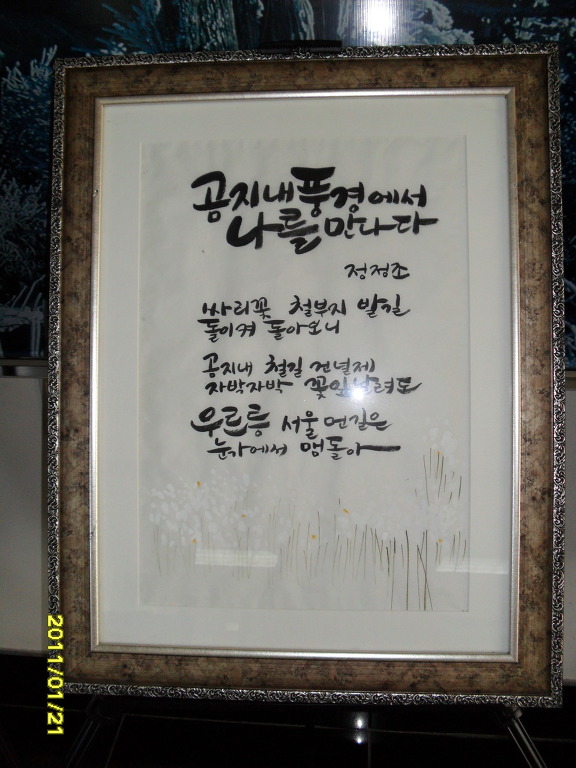 공지내풍경에서
나를 만나다
정정조
싸리꽃 철부지 발길
돌이켜 돌아보니
공지내 철길 건널제
자박자박 꽃잎날려도
우르릉 서울 먼길은
눈가에서 맴돌아
2011/01/21